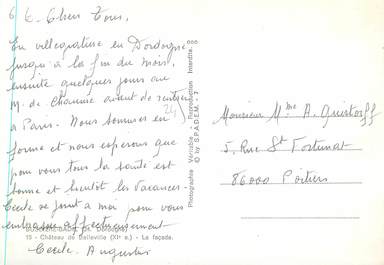 6. 6. Chers Tous,
En villégiature en Dordogne
jusqu'à la fin du mois,
ensuite quelques jours au
M. de Chaume avant de rentrer
à Paris. Nous sommes en
forme et nous espérons que
pour vous tous la santé est
bonne et bientôt les vacances.
Cécile se joint à moi pour vous
embrasser affectueusement
Cécile. Augustin
15 - Château de Belleville (XIe s.) - La façade.
Photographie Véritable - Reproduction Interdite.
© by S.P.A.D.E.M. - 7
Monsieur Mme A. Quistorff
5, Rue St Fortunat
86000 Poitiers